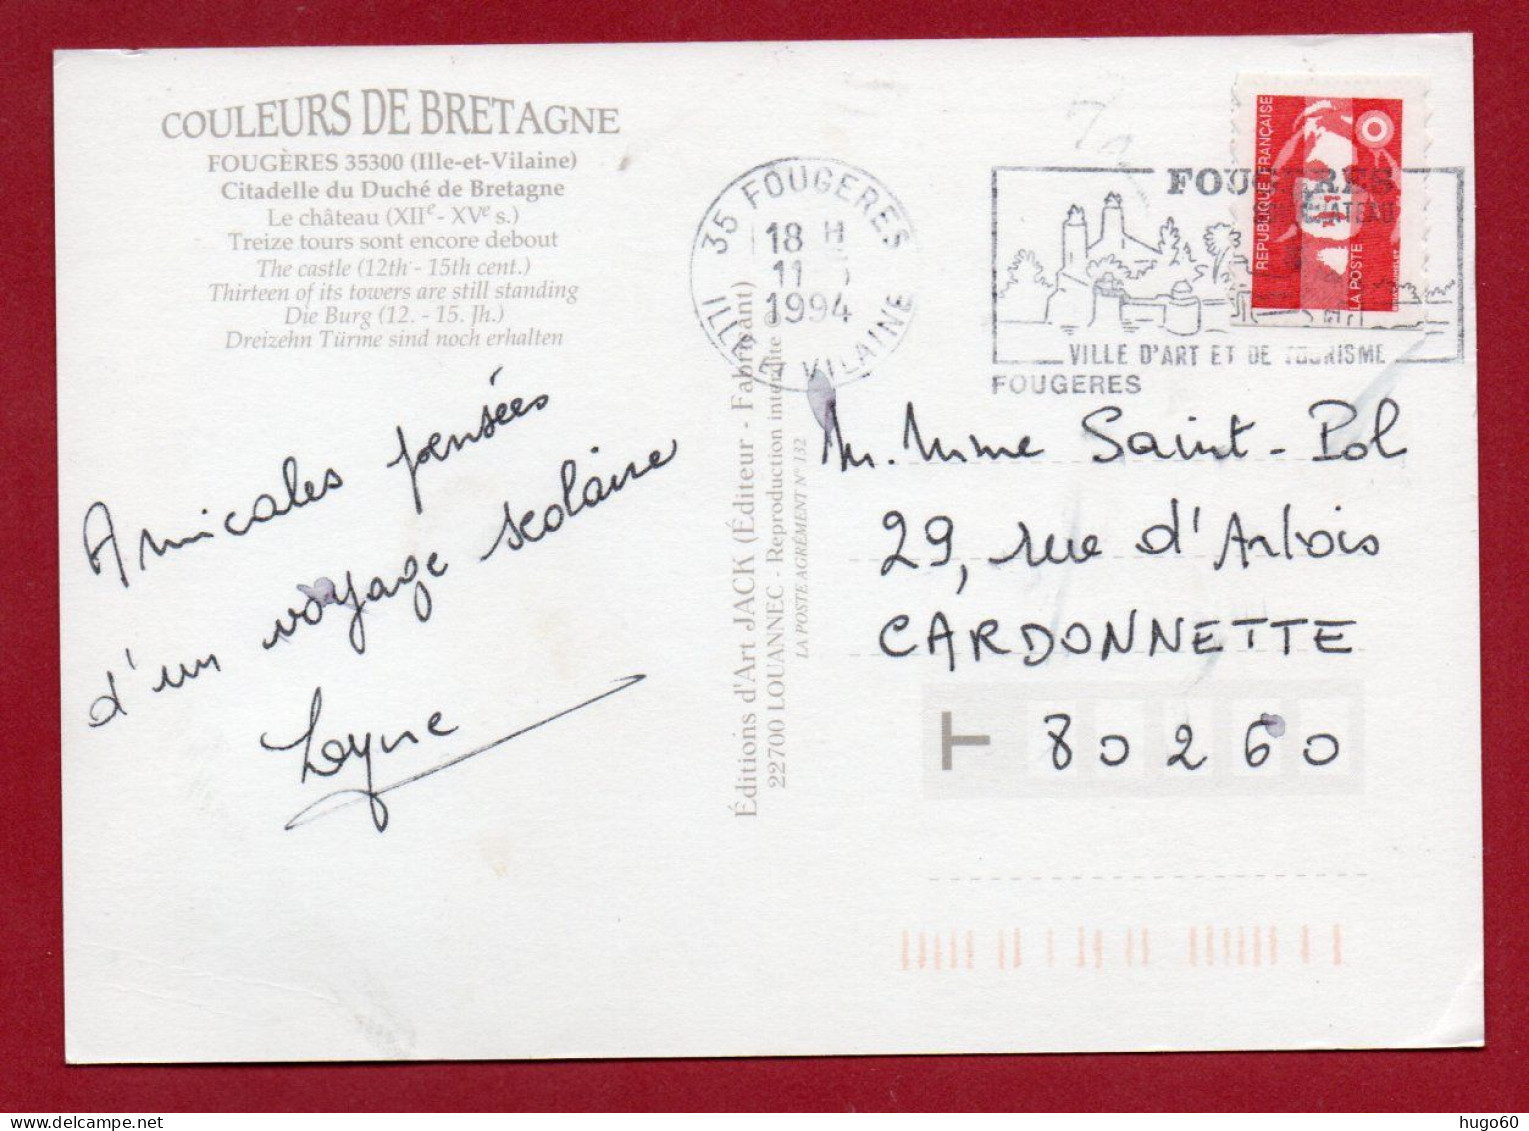 COULEURS DE BRETAGNE
FOUGÈRES 35300 (Ille-et-Vilaine)
Citadelle du Duché de Bretagne
Le château (XIIe - XVe s.)
Treize tours sont encore debout
The castle (12th - 15th cent.)
Thirteen of its towers are still standing
Die Burg (12. - 15. Jh.)
Dreizehn Türme sind noch erhalten
Amicales pensées
d'un voyage scolaire
Lyne
Éditions d'Art JACK (Éditeur - Fabricant)
22700 LOUANNEC - Reproduction interdite
LA POSTE AGRÉMENT N° 132
35 FOUGERES
18 H
11
1994
ILLE ET VILAINE
FOUGERES
CHATEAU
VILLE D'ART ET DE TOURISME
FOUGERES
REPUBLIQUE FRANÇAISE
LA POSTE
M. Mme Saint-Pol
29, rue d'Arbois
CARDONNETTE
T 80260
hugo60